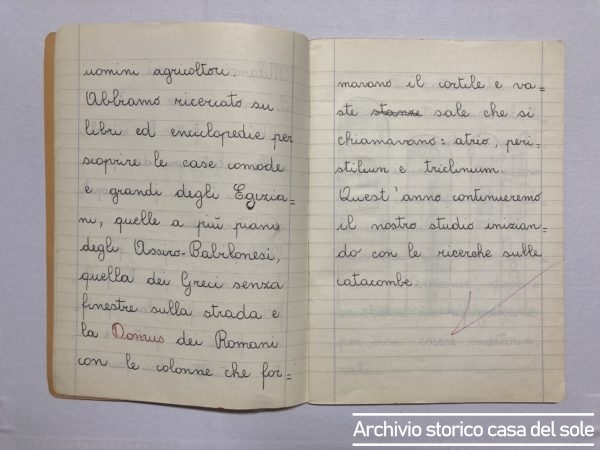 uomini agricoltori.
Abbiamo ricercato su
libri ed enciclopedie per
scoprire le case comode
e grandi degli Egizia=
ni, quelle a più piani
degli Assiro-Babilonesi,
quella dei Greci senza
finestre sulla strada e
la Domus dei Romani
con le colonne che for=
mavano il cortile e va=
ste stanze sale che si
chiamavano: atrio, peri=
stilium e triclinium.
Quest'anno continueremo
il nostro studio inizian=
do con le ricerche sulle
catacombe.
Archivio storico casa del sole